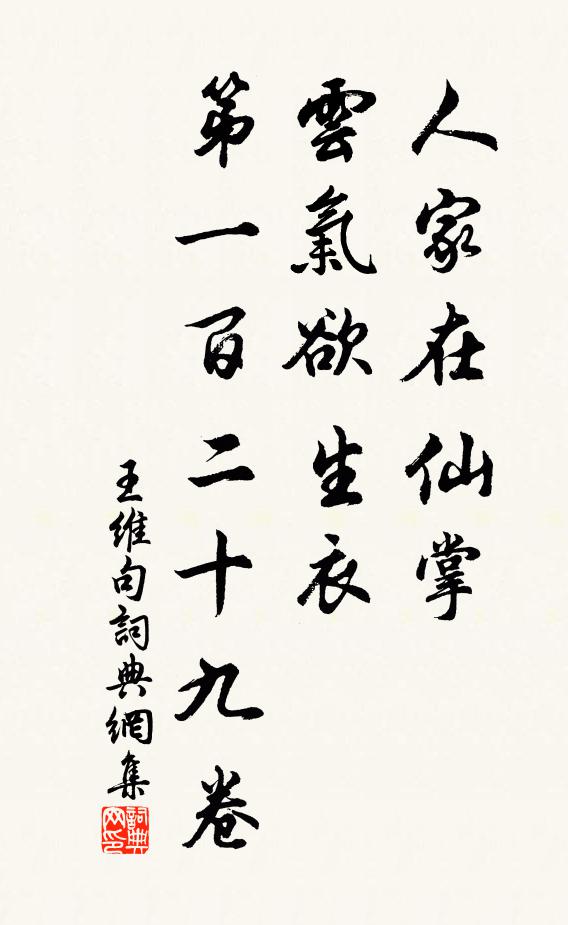 人家在仙掌
雲氣欲生衣
第一百二十九卷
王維句詞典網集
詞典网印